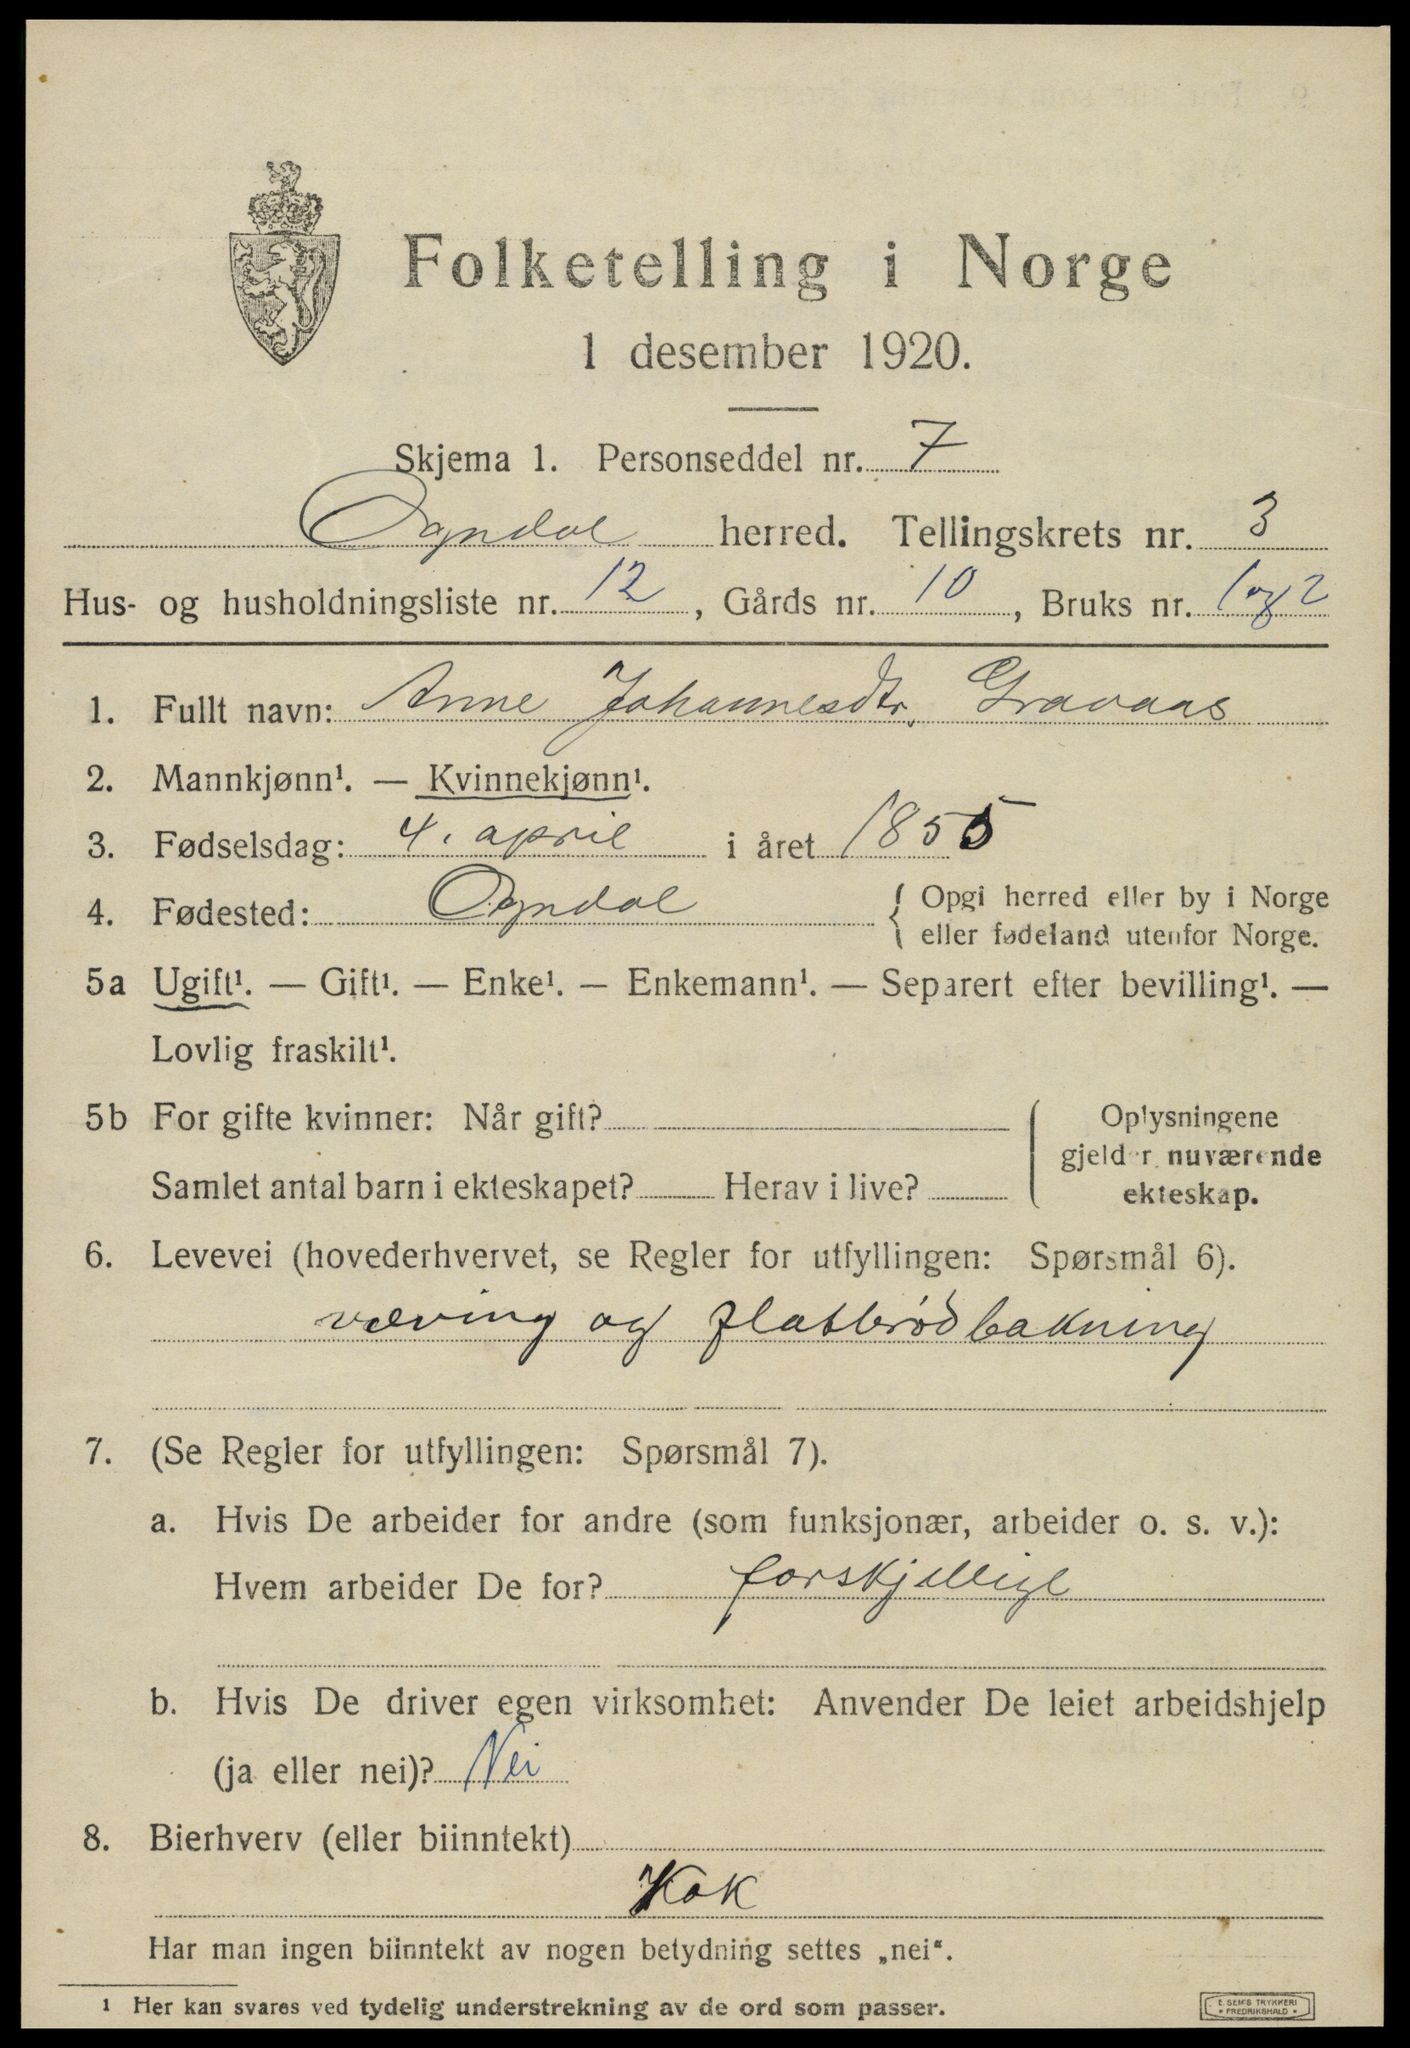 Folketelling i Norge
1 desember 1920.
Skjema 1. Personseddel nr. 7
Ogndal herred. Tellingskrets nr. 3
Hus- og husholdningsliste nr. 12, Gårds nr. 10, Bruks nr. 1 og 2
1. Fullt navn: Anne Johannesdtr. Gravaas
2. Mannkjønn¹. — Kvinnekjønn¹.
3. Fødselsdag: 4. april i året 1855
4. Fødested: Ogndal { Opgi herred eller by i Norge
eller fødeland utenfor Norge.
5a Ugift¹. — Gift¹. — Enke¹. — Enkemann¹. — Separert efter bevilling¹. —
Lovlig fraskilt¹.
5b For gifte kvinner: Når gift?
Samlet antal barn i ekteskapet? Herav i live?
Oplysningene
gjelder nuværende
ekteskap.
6. Levevei (hovederhvervet, se Regler for utfyllingen: Spørsmål 6).
væving og flatbrødbakning
7. (Se Regler for utfyllingen: Spørsmål 7).
a. Hvis De arbeider for andre (som funksjonær, arbeider o. s. v.):
Hvem arbeider De for? forskjellige
b. Hvis De driver egen virksomhet: Anvender De leiet arbeidshjelp
(ja eller nei)? Nei
8. Bierhverv (eller biinntekt)
Kok
Har man ingen biinntekt av nogen betydning settes „nei“.
1 Her kan svares ved tydelig understrekning av de ord som passer.
E. SEM'S TRYKKERI
• FREDRIKSHALD •